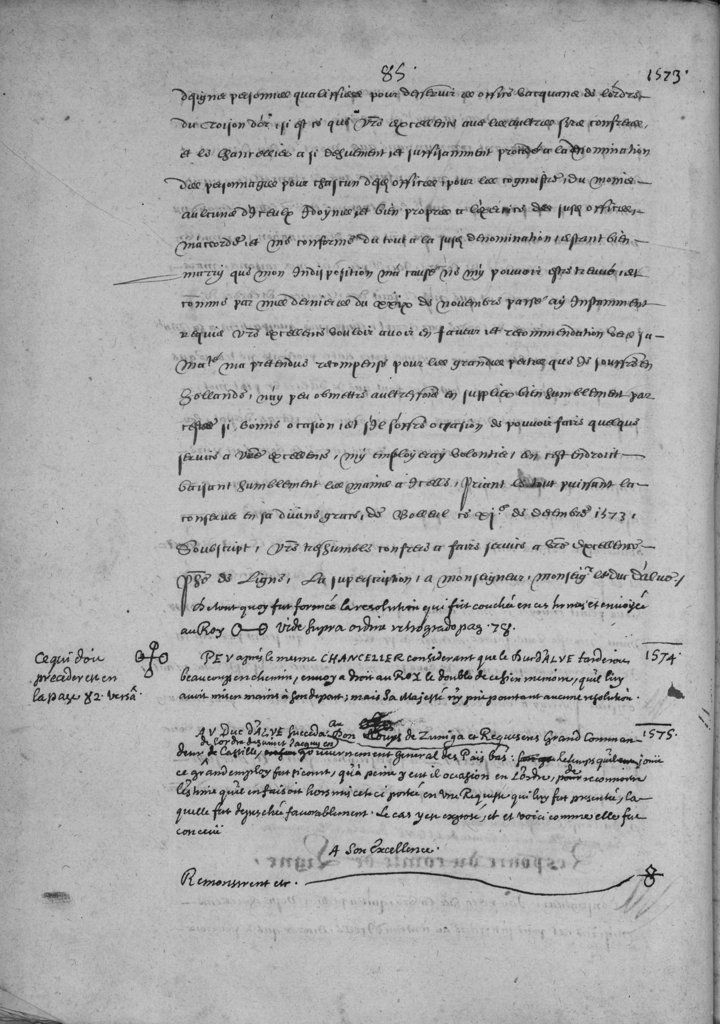 85.
1573.
designe personnes qualiffiees pour desservir es offices vacquans de l'ordre
du Toison d'or, si est ce que vre excellence avec les aultres sgrs confreres,
et le chancellier a si deuement et suffisamment procede a la denomination
des personnages pour chascun desd. offices, pour les cognoistre, du moins
aulcuns d'iceulx idoynes et bien propres a l'exercice des susd. offices,
m'accorde et me conforme du tout a la susd. denomination, estant bien
marry que mon indisposition m'a cause ne m'y pouvoir estre treuve, et
comme par mes dernieres du xxix de novembre passe ay instamment
requis vre excellence vouloir avoir en faveur et recommendation vers sa
Mate ma pretendue recompense pour les grandes pertes que je souffre en
Hollande, n'ay peu obmettre aultresfois en supplier bien humblement par
ceste si bonne ocasion, et s'il s'offre occasion de pouvoir faire quelque
service a vre excellence, m'y employeray volontiers, en cest endroit
baisant humblement les mains a icelle, priant le tout puissant la
conserver en sa divine grace, de Beloeil ce xje de decembre 1573,
Soubscript, vre treshumble confrere a faire service a vre excellence
Phe de Ligne, La superscription, a monseigneur, monseigr le duc d'Alve,
De tout quoy fut formée la resolution qui fut couchée en ces termes et envoyée
au Roy vide supra ordine retrogrado pag. 78.
Ce qui doit
preceder est en
la page 82 versâ
PEU après le mesme CHANCELIER considerant que le Duc D'ALVE tarderoit
1574
beaucoup en chemin, envoya droit au ROY le double de ce sien memoire, qu'il luy
avoit mis en mains à son depart; mais sa Majesté n'y prit pourtant aucune resolution.
AU Duc d'ALVE succeda au Don Louys de Zuniga et Requesens Grand Comman
1575.
deur de Castille, de l'ordre de saint Jacques en gouvernement General des Païs bas: le temps qu'il jouit
ce grand employ fut si court, qu'à peine y eut il ocasion en l'ordre, de reconnoitre
l'estime qu'il en faisoit horsmis cet ci portée en une Requeste qui luy fut presentée, la
quelle fut depeschée favorablement. Le cas y est exposé, et voici comme elle fut
conceuë
A Son Excellence.
Remonstrent etc.